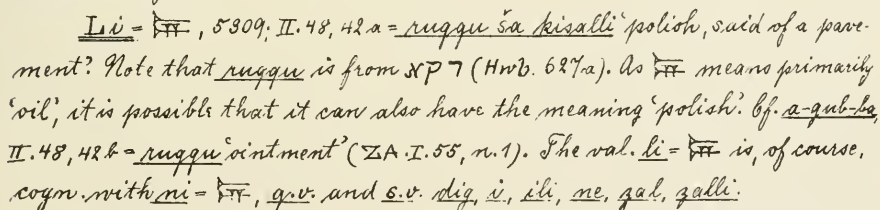 Li = 𒉌, 5309; II.48, 42 a = ruqqu ša kisalli 'polish, said of a pave-
ment'? Note that ruqqu is from רקא (Hwb. 627a). As 𒉌 means primarily
'oil', it is possible that it can also have the meaning 'polish'. Cf. a-gub-ba,
II.48, 42 b = ruqqu 'ointment' (ZA. I. 55, n. 1). The val. li = 𒉌 is, of course,
cogn. with ni = 𒉌, q.v. and s.v. dig, i, ili, ne, zal, zalli.